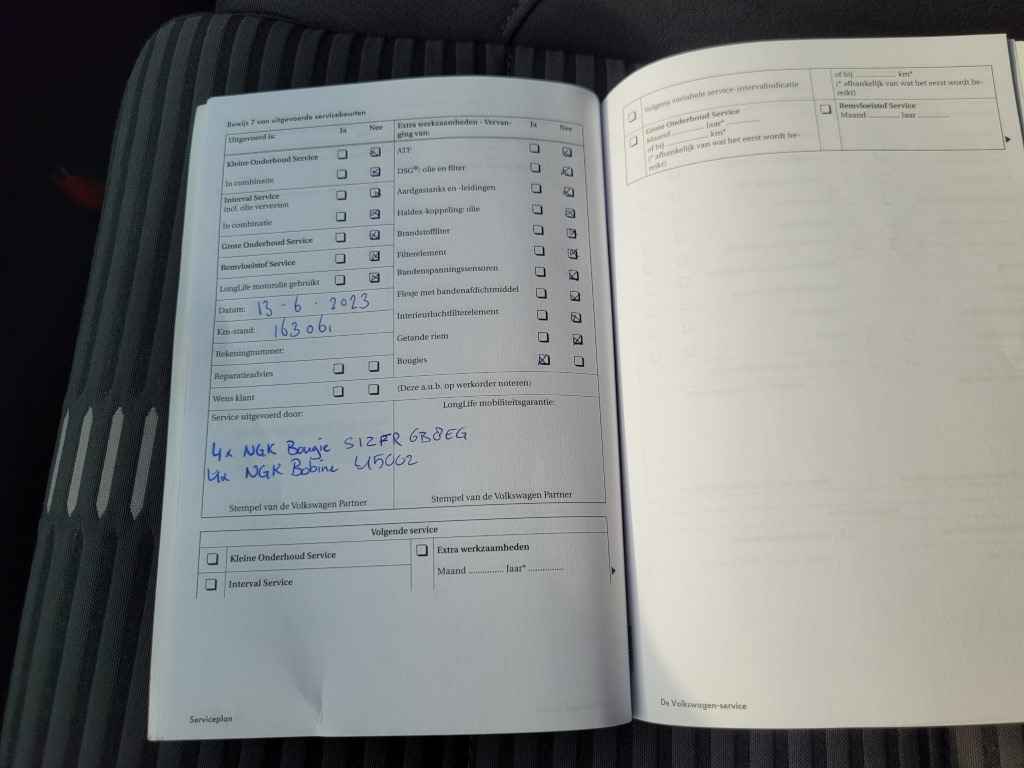 Bewijs 7 van uitgevoerde servicebeurten
Uitgevoerd is: Ja Nee
Kleine Onderhoud Service
In combinatie
Interval Service
incl. olie verversen
In combinatie
Grote Onderhoud Service
Remvloeistof Service
LongLife motorolie gebruikt
Datum: 13-6-2023
Km-stand: 163061
Rekeningnummer:
Reparatieadvies
Wens klant
Service uitgevoerd door:
4x NGK Bougie SIZFR 6B8EG
4x NGK Bobine U5002
Stempel van de Volkswagen Partner
Extra werkzaamheden - Vervan-
ging van: Ja Nee
ATF
DSG®: olie en filter
Aardgastanks en -leidingen
Haldex-koppeling: olie
Brandstoffilter
Filterelement
Bandenspanningssensoren
Flesje met bandenafdichtmiddel
Interieurluchtfilterelement
Getande riem
Bougies
(Deze a.u.b. op werkorder noteren)
LongLife mobiliteitsgarantie:
Stempel van de Volkswagen Partner
Volgende service
Kleine Onderhoud Service
Interval Service
Extra werkzaamheden
Maand .............. Jaar* ..............
Serviceplan
Volgens variabele service-intervalindicatie
Grote Onderhoud Service
Maand ........... Jaar* ...........
of bij .............. km*
(* afhankelijk van wat het eerst wordt be-
reikt)
of bij .............. km*
(* afhankelijk van wat het eerst wordt be-
reikt)
Remvloeistof Service
Maand ........... Jaar ...........
De Volkswagen-service